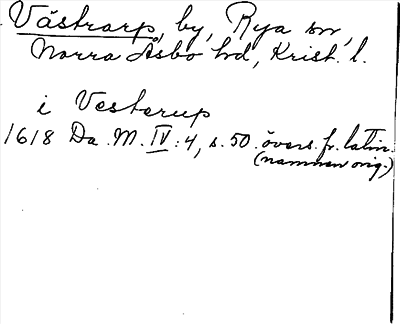 Västrarp, by, Rya sn,
Norra Åsbo hd, Krist. l.
i Vesterup
1618 Da. M. IV: 4, s. 50. övers. fr. latin.
(namnen orig.)